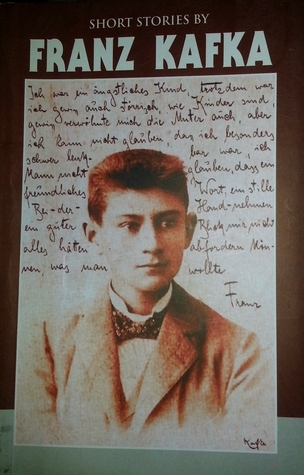 SHORT STORIES BY
FRANZ KAFKA
Ich war ein ängstliches Kind trotzdem war
ich gewiß auch störrisch, wie Kinder sind,
gewiß verwöhnte mich die Mutter auch, aber
ich kann nicht glauben, daß ich besonders
schwer lenk- bar war, ich
kann nicht glauben, dass ein
freundliches Wort, ein stille
Bei-der- Hand-nehmen
ein guter Blick mir nicht
alles hätten abfordern kön-
nen, was man wollte
Franz
Kafka